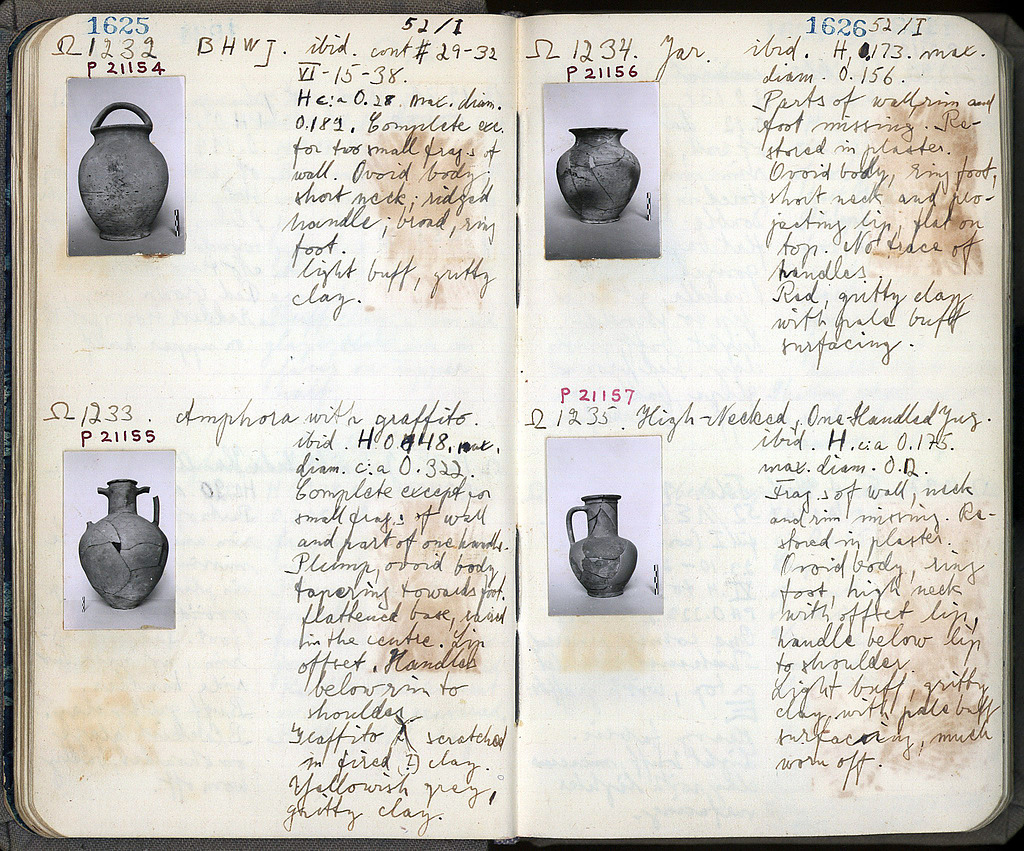 1625
52/I
Ω 1232 BHWJ. ibid. cont # 29-32
P 21154
VI-15-38.
H c:a 0.28. max. diam.
0.189. Complete exc.
for two small frag.s of
wall. Ovoid body;
short neck; ridged
handle; broad, ring
foot.
light buff, gritty
clay.
Ω 1233. Amphora with graffito.
P 21155
ibid. H 0.448. max.
diam. c:a 0.322.
Complete except for
small frag.s of wall
and part of one handle.
Plump, ovoid body
tapering towards foot.
flattened base, raised
in the centre. Lip
offset. Handles
below rim to
shoulder.
Graffito scratched
in fired (?) clay.
Yellowish grey,
gritty clay.
1626
52/I
Ω 1234. Jar. ibid. H. 0.173. max.
P 21156
diam. 0.156.
Parts of wall, rim and
foot missing. Re-
stored in plaster.
Ovoid body, ring foot,
short neck and pro-
jecting lip, flat on
top. No trace of
handles.
Red, gritty clay
with pale buff
surfacing.
P 21157
Ω 1235. High-Necked, One-Handled Jug.
ibid. H. c:a 0.175.
max. diam. 0.12.
Frag.s of wall, neck
and rim missing. Re-
stored in plaster.
Ovoid body, ring
foot, high neck
with offset lip,
handle below lip
to shoulder.
Light buff, gritty
clay, with pale buff
surfacing, much
worn off.